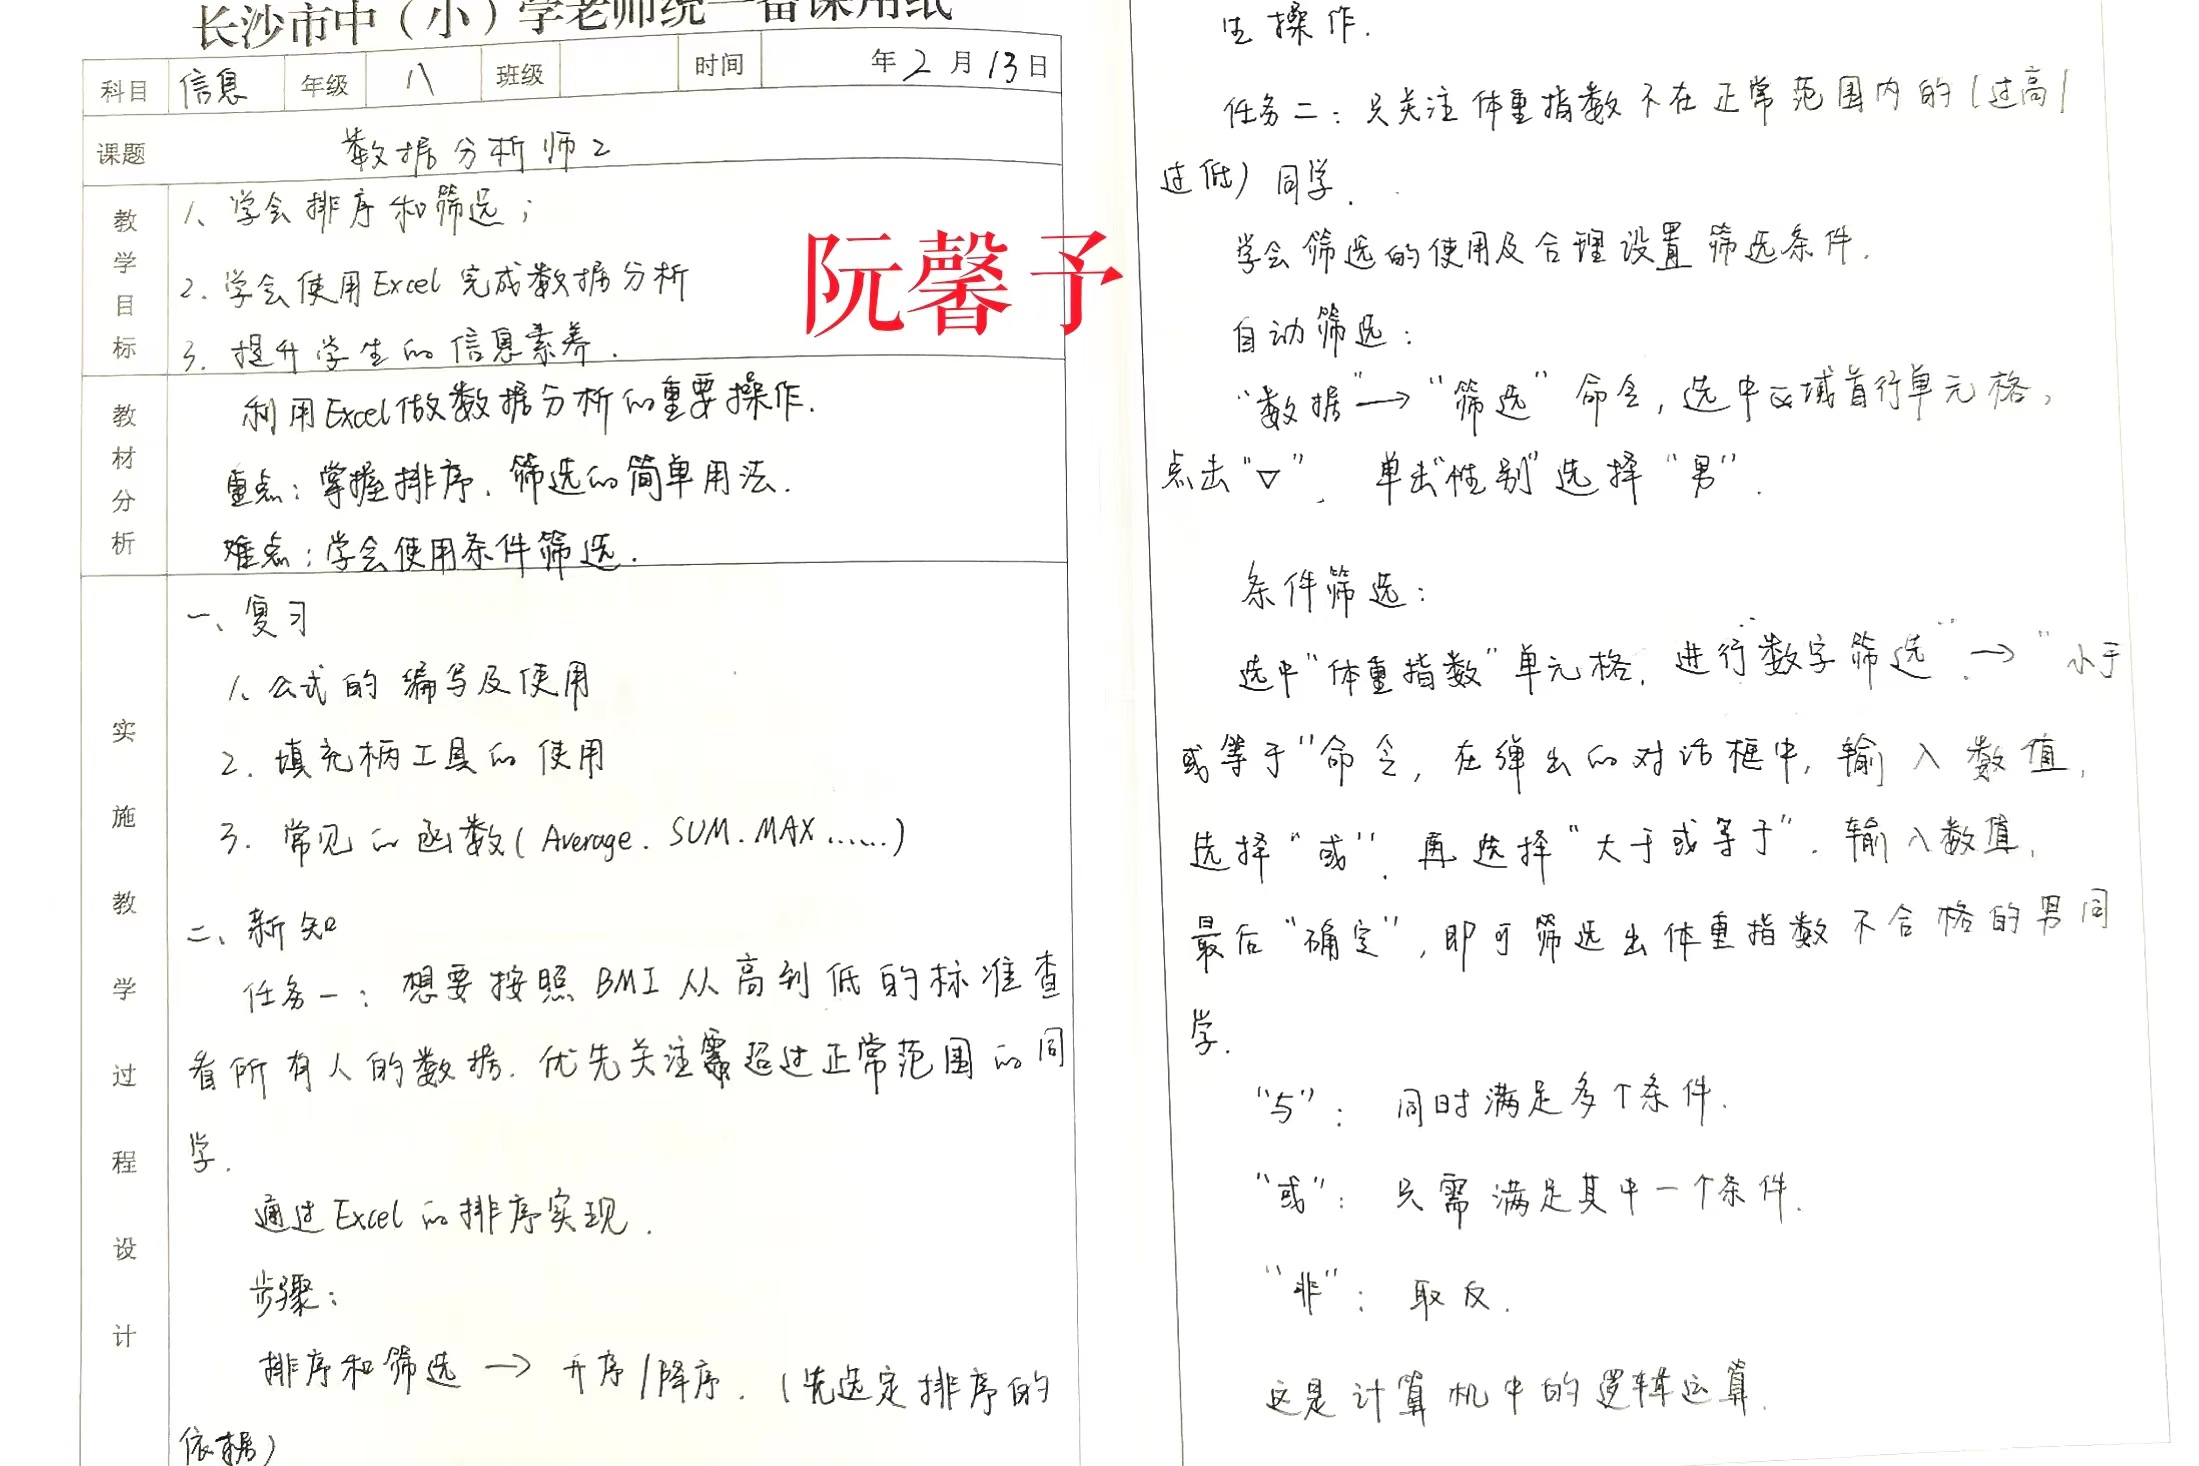 长沙市中（小）学老师统一备课用纸
科目 信息 年级 八 班级 时间 年2月13日
课题 数据分析师2
教学目标
1、学会排序和筛选；
2.学会使用Excel完成数据分析
3.提升学生的信息素养.
阮馨予
教材分析
利用Excel做数据分析的重要操作.
重点：掌握排序、筛选的简单用法.
难点：学会使用条件筛选.
实施教学过程设计
一、复习
1、公式的编写及使用
2.填充柄工具的使用
3.常见的函数(Average.SUM.MAX……)
二、新知
任务一：想要按照BMI从高到低的标准查
看所有人的数据.优先关注超过正常范围的同
学.
通过Excel的排序实现.
步骤：
排序和筛选→升序/降序.(先选定排序的
依据)
生操作.
任务二：只关注体重指数不在正常范围内的(过高/
过低)同学.
学会筛选的使用及合理设置筛选条件.
自动筛选：
“数据”→“筛选”命令,选中区域首行单元格,
点击“▽”.单击“性别”选择“男”.
条件筛选：
选中“体重指数”单元格,进行“数字筛选”.→“小于
或等于”命令,在弹出的对话框中,输入数值,
选择“或”.再选择“大于或等于”.输入数值,
最后“确定”,即可筛选出体重指数不合格的男同
学.
“与”：同时满足多个条件.
“或”：只需满足其中一个条件.
“非”：取反.
这是计算机中的逻辑运算.